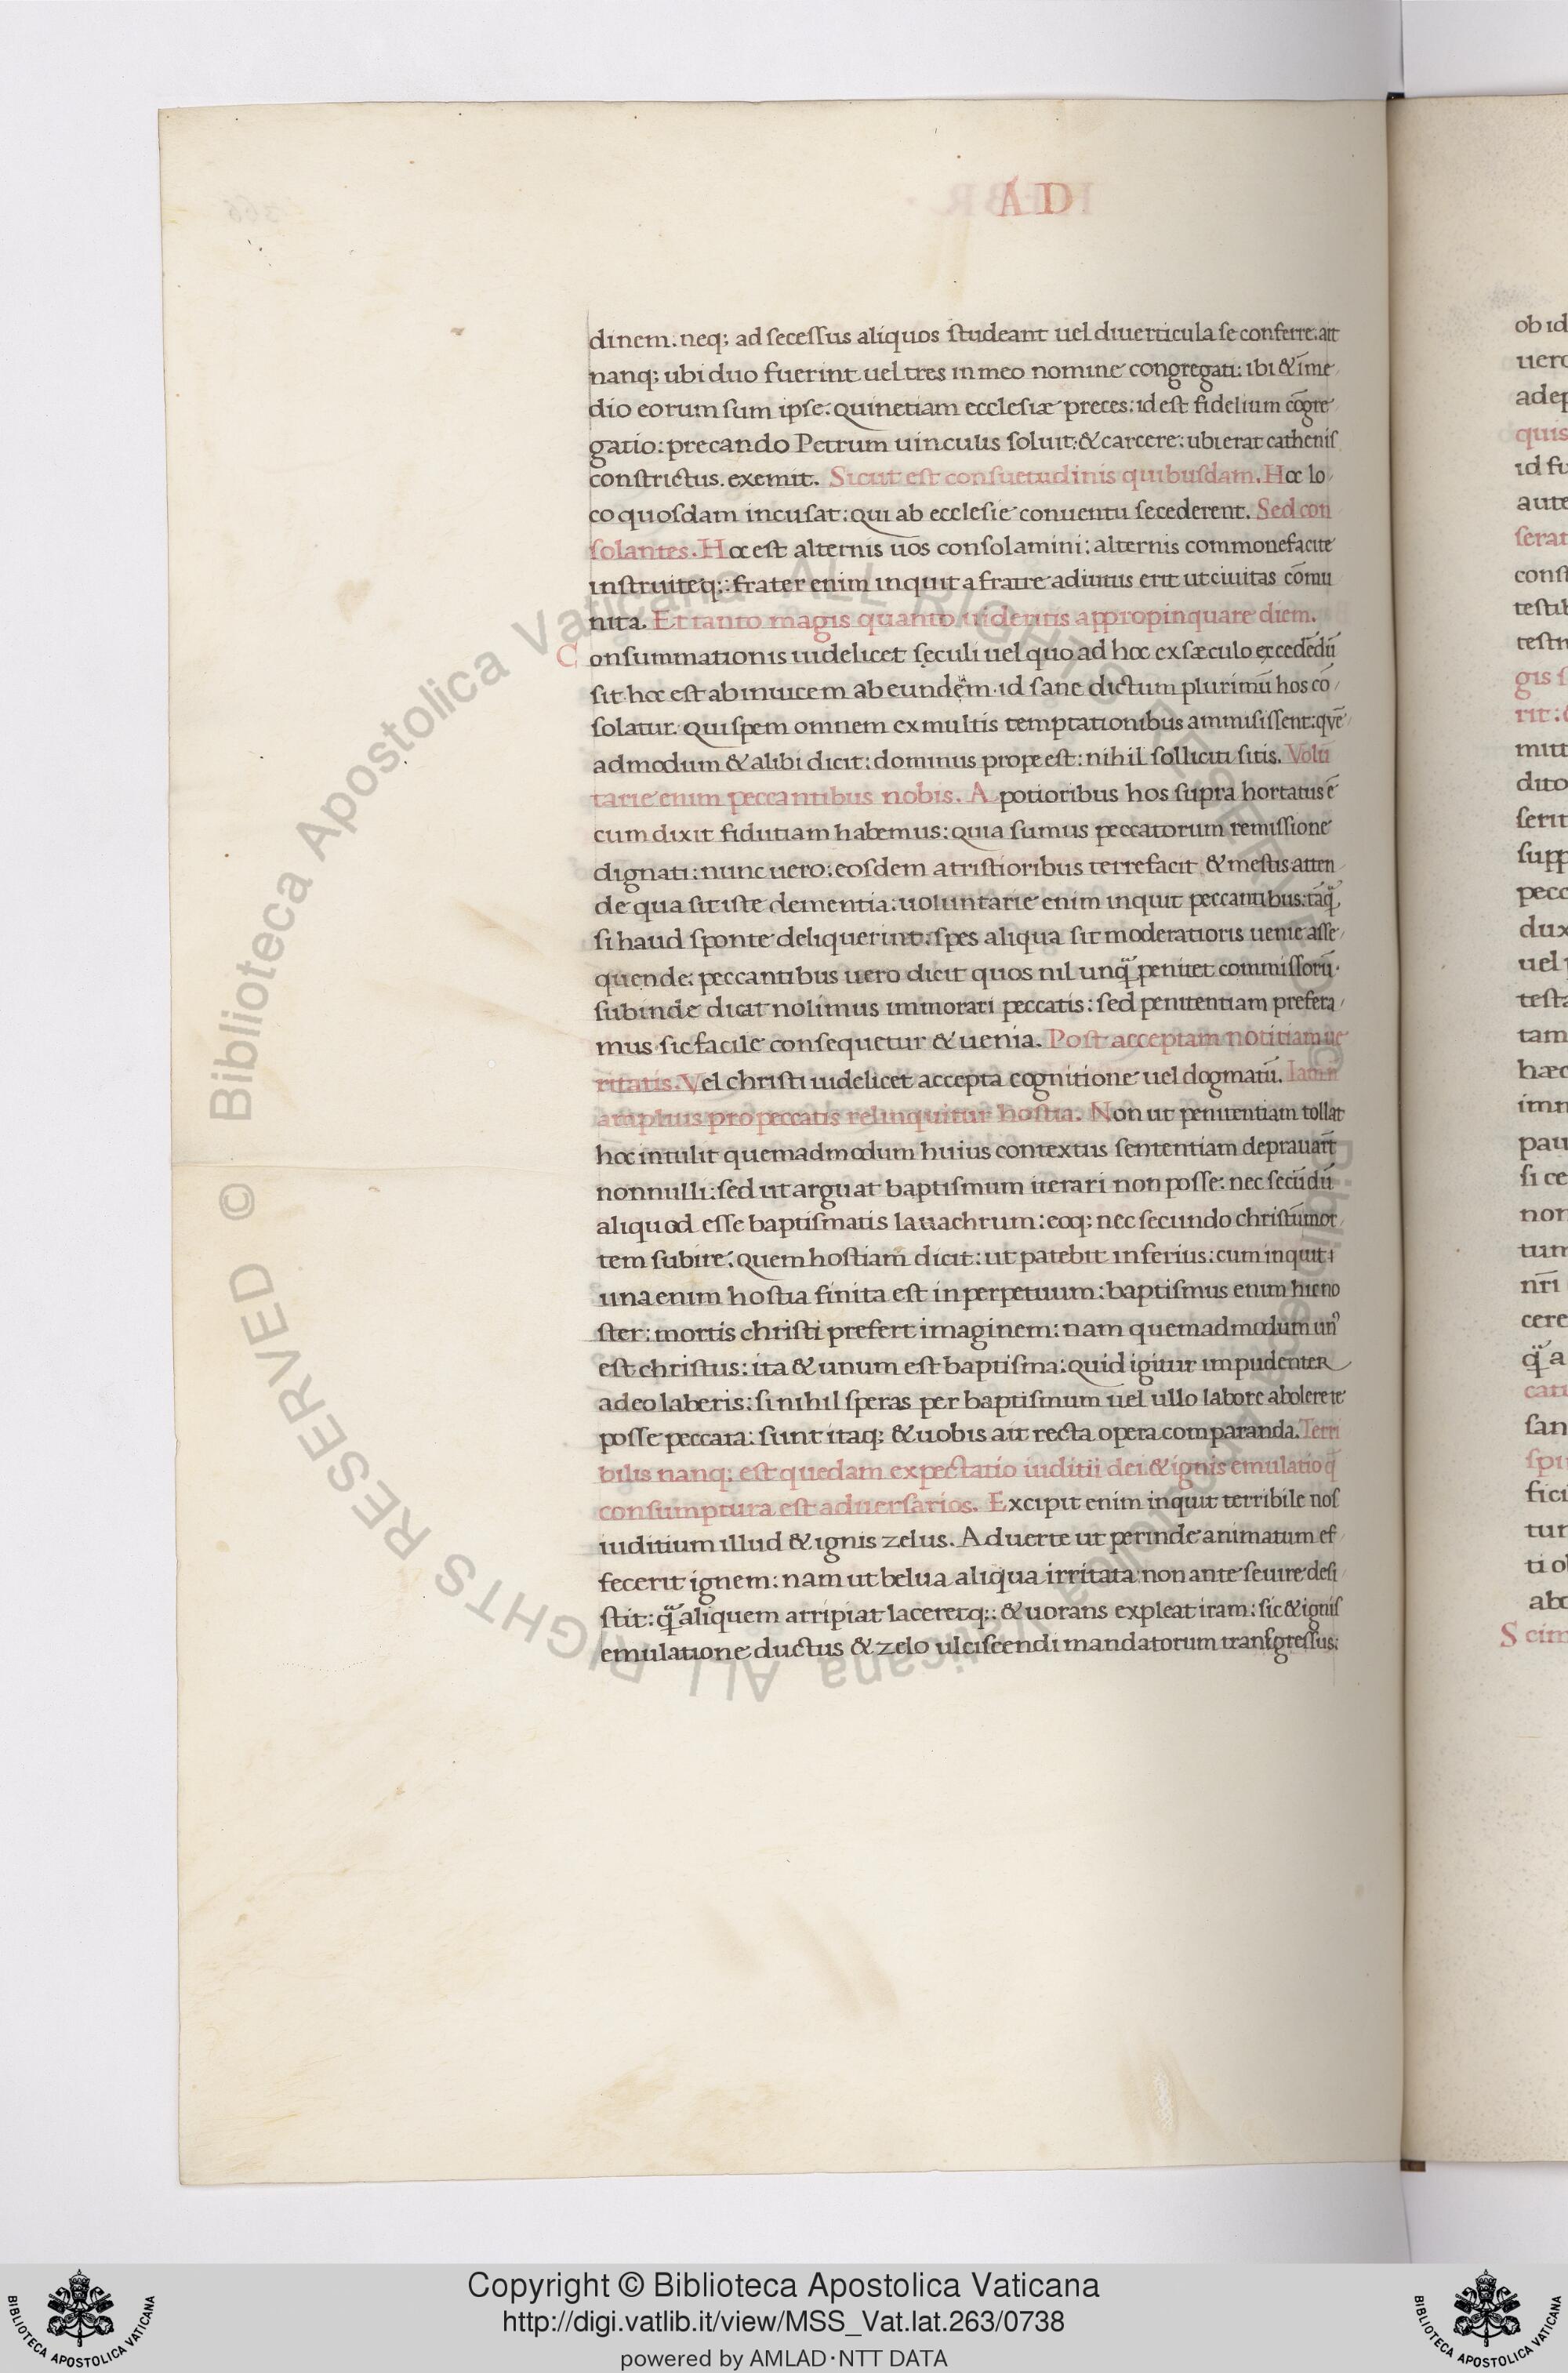 AD
dinem. neq; ad secessus aliquos studeant uel diuerticula se conferre. ait
nanq; ubi duo fuerint uel tres in meo nomine congregati: ibi & ī me
dio eorum sum ipse: quinetiam ecclesiæ preces: id est fidelium cōgre
gatio: precando Petrum uinculis soluit: & carcere: ubi erat cathenis
constrictus. exemit. Sicut est consuetudinis quibusdam. Hoc lo
co quosdam incusat: qui ab ecclesie conuentu secederent. Sed con
solantes. Hoc est alternis uos consolamini: alternis commonefacite
instruiteq;: frater enim inquit a fratre adiutus erit ut ciuitas cōmu
nita. Et tanto magis quanto uideritis appropinquare diem.
Consummationis uidelicet sęculi uel quo ad hoc ex sæculo excedēdū
sit. hoc est ab inuicem ab eundem. id sane dictum plurimū hos cō
solatur. qui spem omnem ex multis temptationibus ammisissent: quē
admodum & alibi dicit: dominus prope est: nihil solliciti sitis. Volū
tarie enim peccantibus nobis. A potioribus hos supra hortatus ē
cum dixit fidutiam habemus: quia sumus peccatorum remissione
dignati: nunc uero: eosdem a tristioribus terrefacit & mestis: atten
de qua sit iste dementia: uoluntarie enim inquit peccantibus: tāq̃
si haud sponte deliquerint: spes aliqua sit moderatioris uenie asse
quende: peccantibus uero dicit quos nil unq̃ penitet commissorū.
subinde dicat nolimus immorari peccatis: sed penitentiam prefera
mus sic facile consequetur & uenia. Post acceptam notitiam ue
ritatis. Vel christi uidelicet accepta cognitione uel dogmatū. Iam ñ
amplius pro peccatis relinquitur hostia. Non ut penitentiam tollat
hoc intulit quemadmodum huius contextus sententiam deprauarūt
nonnulli: sed ut arguat baptismum iterari non posse: nec secūdū
aliquod esse baptismatis lauachrum: eoq; nec secundo christū mor
tem subire. quem hostiam dicit: ut patebit inferius: cum inquit:
una enim hostia finita est in perpetuum: baptismus enim hic no
ster: mortis christi prefert imaginem: nam quemadmodum un⁹
est christus: ita & unum est baptisma: quid igitur impudenter
adeo laberis: si nihil speras per baptismum uel ullo labore abolere te
posse peccata: sunt itaq; & uobis ait recta opera comparanda. Terri
bilis nanq; est quedam expectatio iuditii dei & ignis emulatio q̄
consumptura est aduersarios. Excipit enim inquit terribile nos
iuditium illud & ignis zelus. Aduerte ut perinde animatum ef
fecerit ignem: nam ut belua aliqua irritata: non ante seuire desi
stit: q̃ aliquem arripiat laceretq;: & uorans expleat iram: sic & ignis
emulatione ductus & zelo ulciscendi mandatorum transgressus:
ob id
uero
adep
quis
id fu
aute
serat
const
testib
testn
gis s
rit: &
mitt
dito
serit
supp
pecc
dux
uel
testa
tam
hæc
imn
pau
si ce
non
tum
nr̄i
cere
q̃ a
catu
san
spi
fici
tur
ti ol
abo
Scim
© Biblioteca Apostolica Vaticana ALL RIGHTS RESERVED © Biblioteca Apostolica Vaticana ALL RIGHTS RESERVED
Copyright © Biblioteca Apostolica Vaticana
http://digi.vatlib.it/view/MSS_Vat.lat.263/0738
powered by AMLAD·NTT DATA
BIBLIOTECA APOSTOLICA VATICANA
BIBLIOTECA APOSTOLICA VATICANA